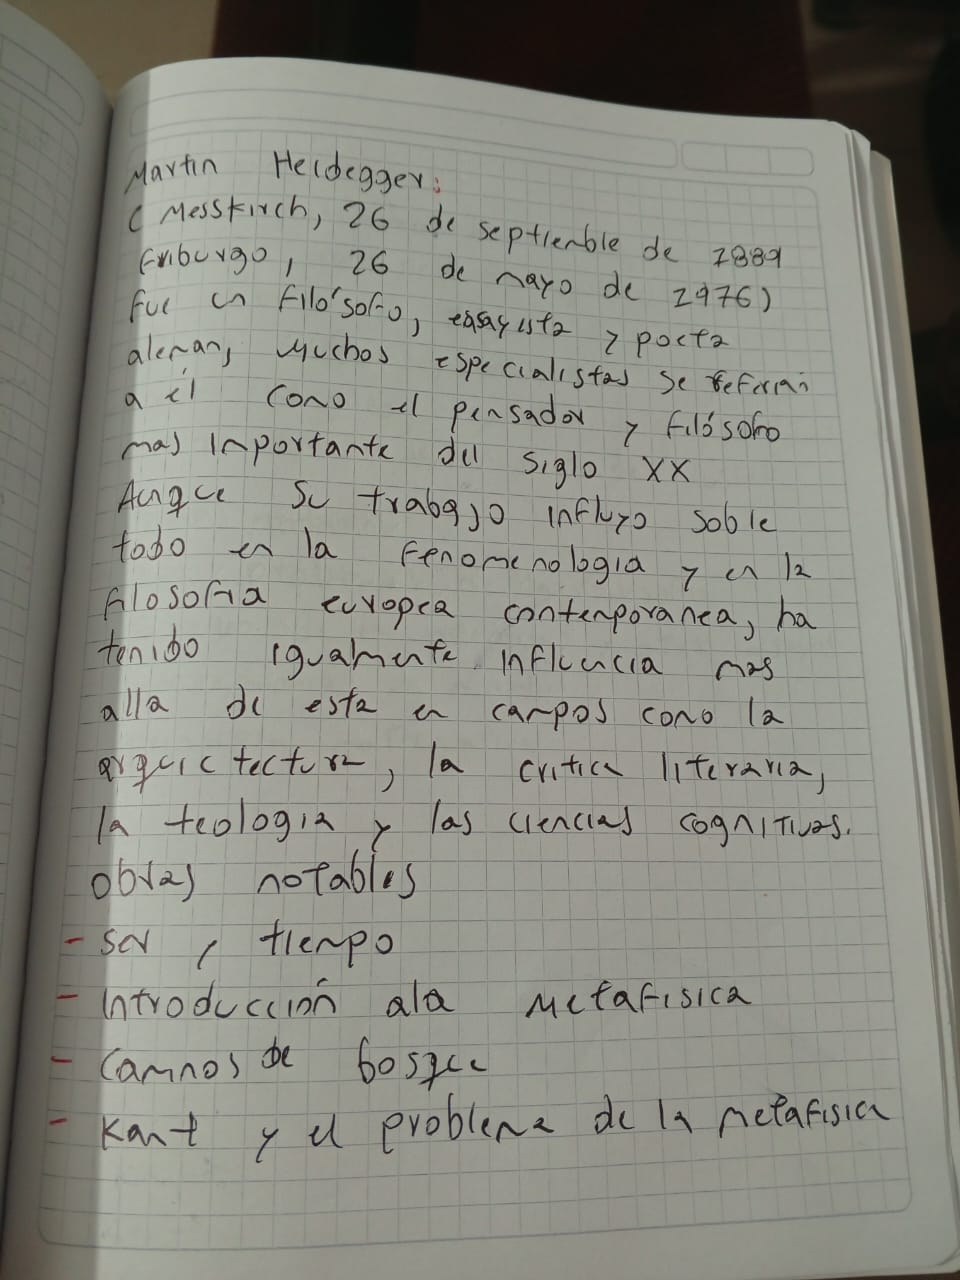 Martin Heidegger:
( Messkirch, 26 de septiembre de 1889
Friburgo, 26 de mayo de 1976)
fue un filósofo, ensayista y poeta
aleman, Muchos especialistas se referian
a él como el pensador y filósofo
mas importante del siglo XX
Aunque su trabajo influyo sobre
todo en la fenomenologia y en la
filosofia europea contemporanea, ha
tenido igualmente influencia mas
alla de esta en campos como la
arquictectura, la critica literaria,
la teologia y las ciencias cognitivas.
obras notables
- Ser y tiempo
- Introducción ala Metafisica
- Caminos de bosque
- Kant y el problema de la metafisica